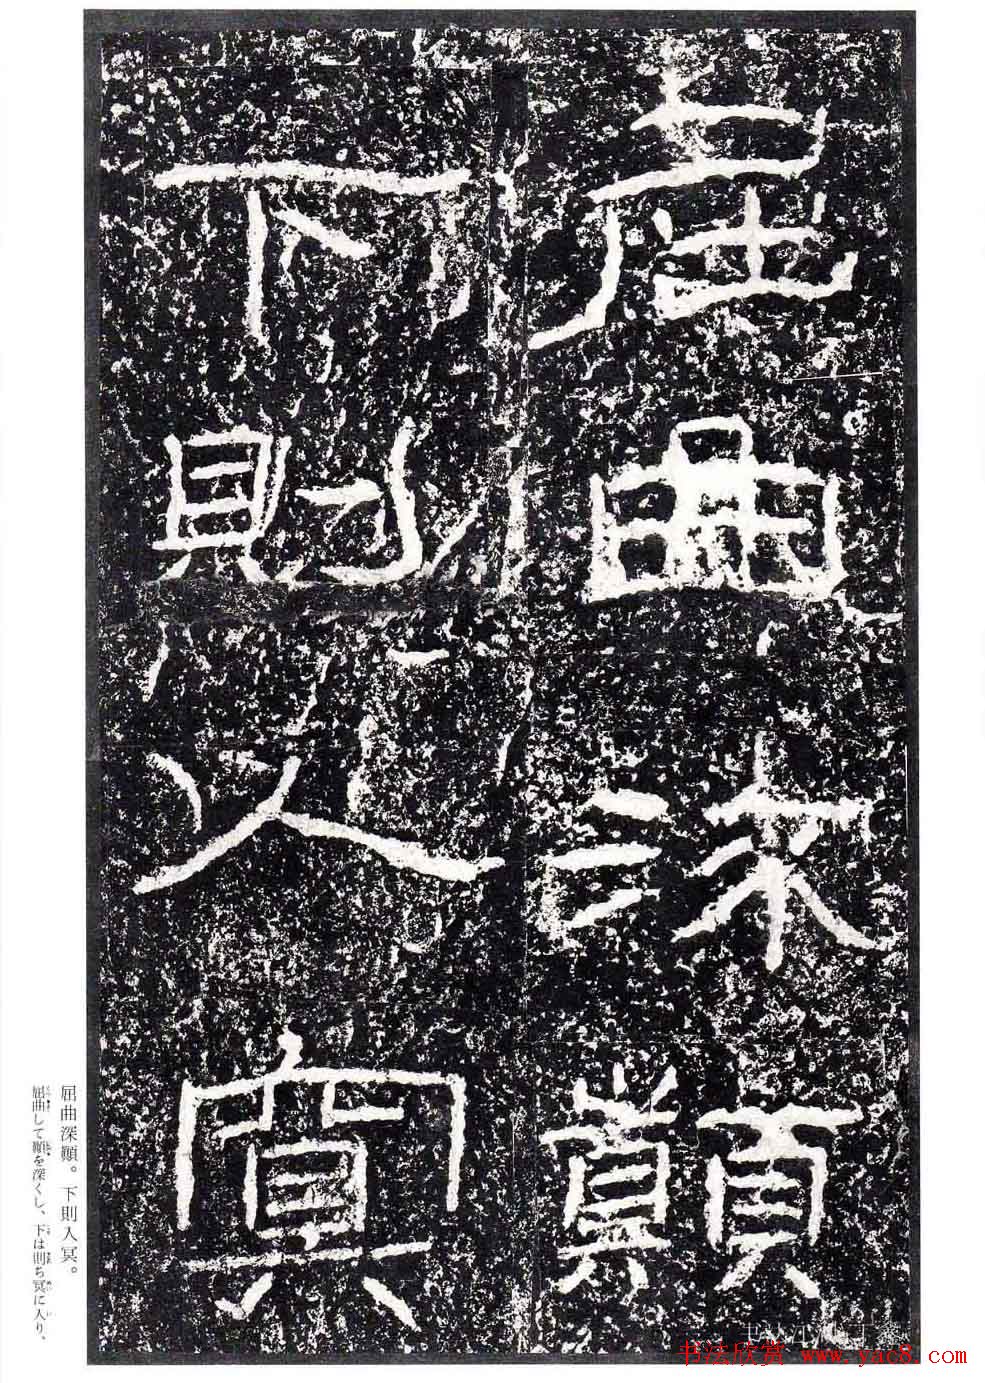 屈曲深顚
下則入冥
屈曲深顚。下則入冥。
屈曲して顚を深くし、下は則ち冥に入り、
书法欣赏 www.yac8.com